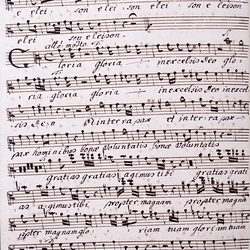 e elei: son elei: son elei son e
elei son eleison.
allo modto.
Gloria gloria in excelsis Deo glo
ria gloria gloria in excelsis Deo inexcel
sis Deo. Et in terra pax et in terra pax
pax hominibus bonæ voluntatis bonæ voluntatis
gratias gratias agimus tibi gratias grati
as agimus tibi propter magnam propter magna
propter magnam gloriam tuam gloriam tuam